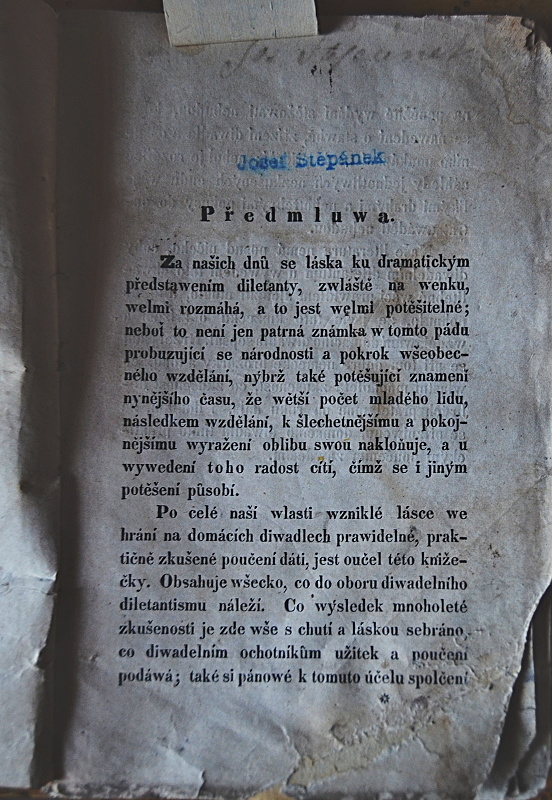 Josef Štěpánek
Předmluwa.
Za našich dnů se láska ku dramatickým
představením diletanty, zwláště na wenku,
welmi rozmáhá, a to jest welmi potěšitelné;
neboť to není jen patrná známka w tomto pádu
probuzující se národnosti a pokrok wšeobec-
ného wzdělání, nýbrž také potěšující znamení
nynějšího času, že wětší počet mladého lidu,
následkem wzdělání, k šlechetnějšímu a pokoj-
nějšímu wyražení oblibu swou nakloňuje, a u
wywedení toho radost cítí, čímž se i jiným
potěšení působí.
Po celé naší wlasti wzniklé lásce we
hrání na domácích diwadlech prawidelné, prak-
tičné zkušené poučení dáti, jest oučel této kniže-
čky. Obsahuje wšecko, co do oboru diwadelního
diletantismu náleží. Co wýsledek mnoholeté
zkušenosti je zde wše s chutí a láskou sebráno,
co diwadelním ochotníkům užitek a poučení
podáwá; také si pánowé k tomuto účelu spolčení
*